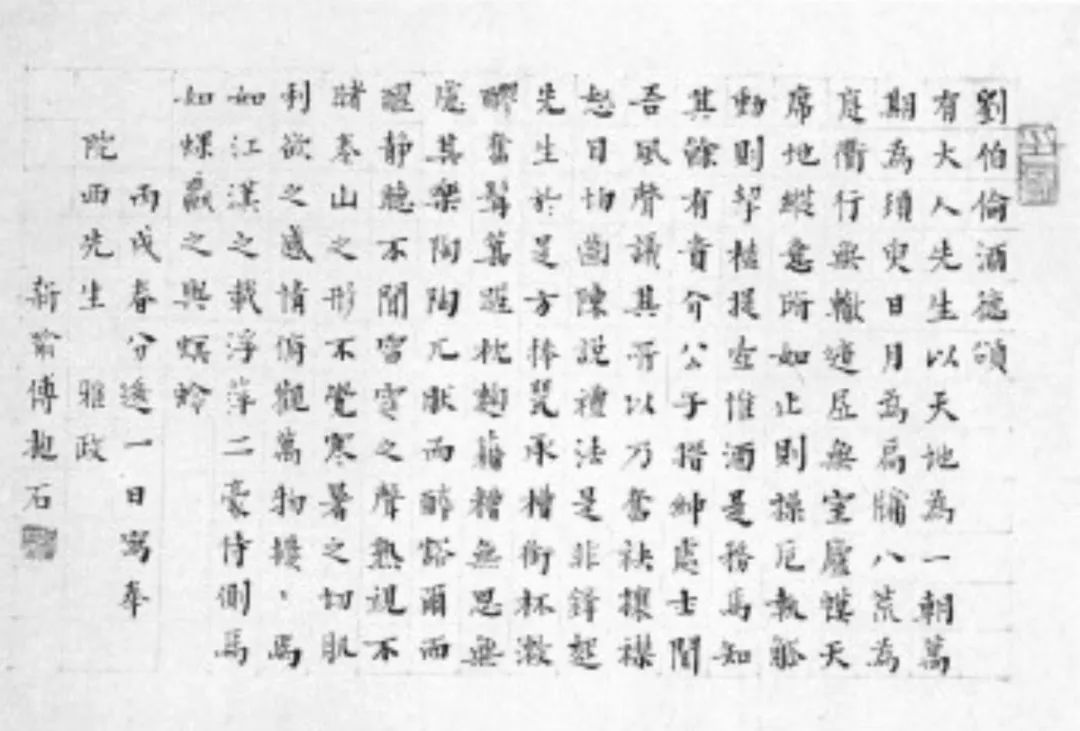 劉伯倫酒德頌
有大人先生以天地為一朝萬
期為須臾日月為扃牖八荒為
庭衢行無轍迹居無室廬幙天
席地縱意所如止則操卮執觚
動則挈榼提壺惟酒是務焉知
其餘有貴介公子搢紳處士聞
吾風聲議其所以乃奮袂攘襟
怒目切齒陳說禮法是非鋒起
先生於是方捧甖承槽銜杯漱
醪奮髯箕踞枕麴藉糟無思無
慮其樂陶陶兀然而醉豁爾而
醒靜聽不聞雷霆之聲熟視不
睹泰山之形不覺寒暑之切肌
利欲之感情俯觀萬物擾〻焉
如江漢之載浮萍二豪侍側焉
如蜾蠃之與螟蛉
丙戌春分一日寫奉
院西先生 雅政
新喻傅抱石